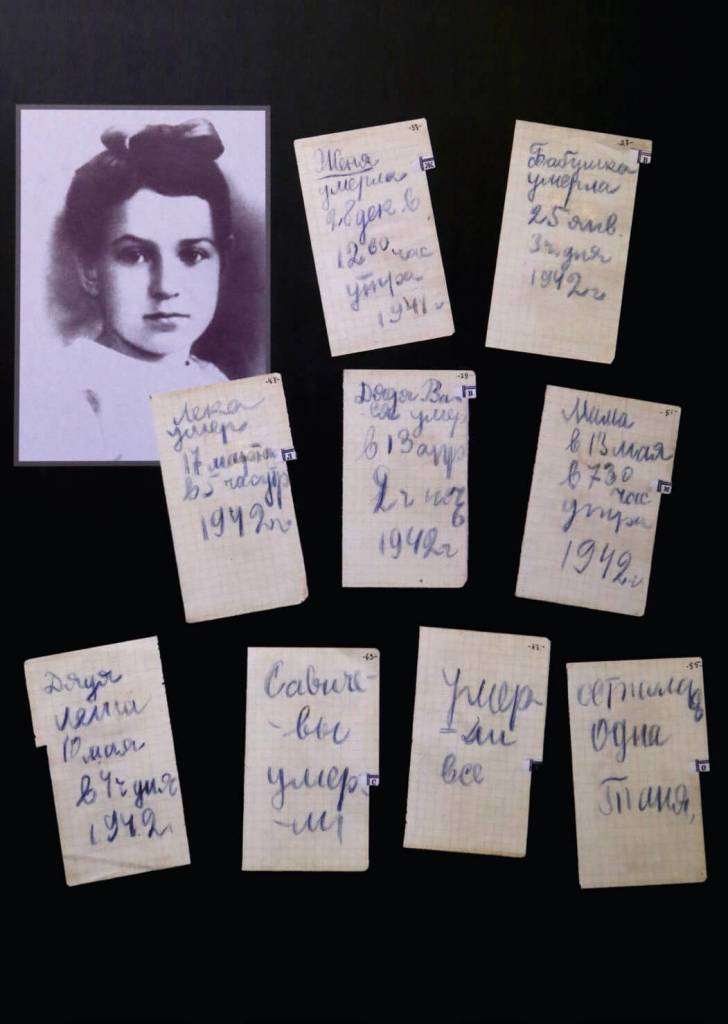 Ж
Женя
умерла
28 дек в
12 00 час
утра
1941 г
Бабушка
умерла
25 янв.
3 ч. дня
1942 г
Лека
умер
17 марта
в 5 часутр
1942 г.
Л
В
Дядя Ва
ся умер
в 13 апр
2 ч ноч
в
1942 г
Мама
в 13 мая
в 7 30
час
утра
1942 г
М
Дядя
Леша
10 мая
в 4 ч дня
1942
-63-
Савиче-
-вы
умер
-ли
С
Умер
-ли
все
осталась
одна
Таня
О